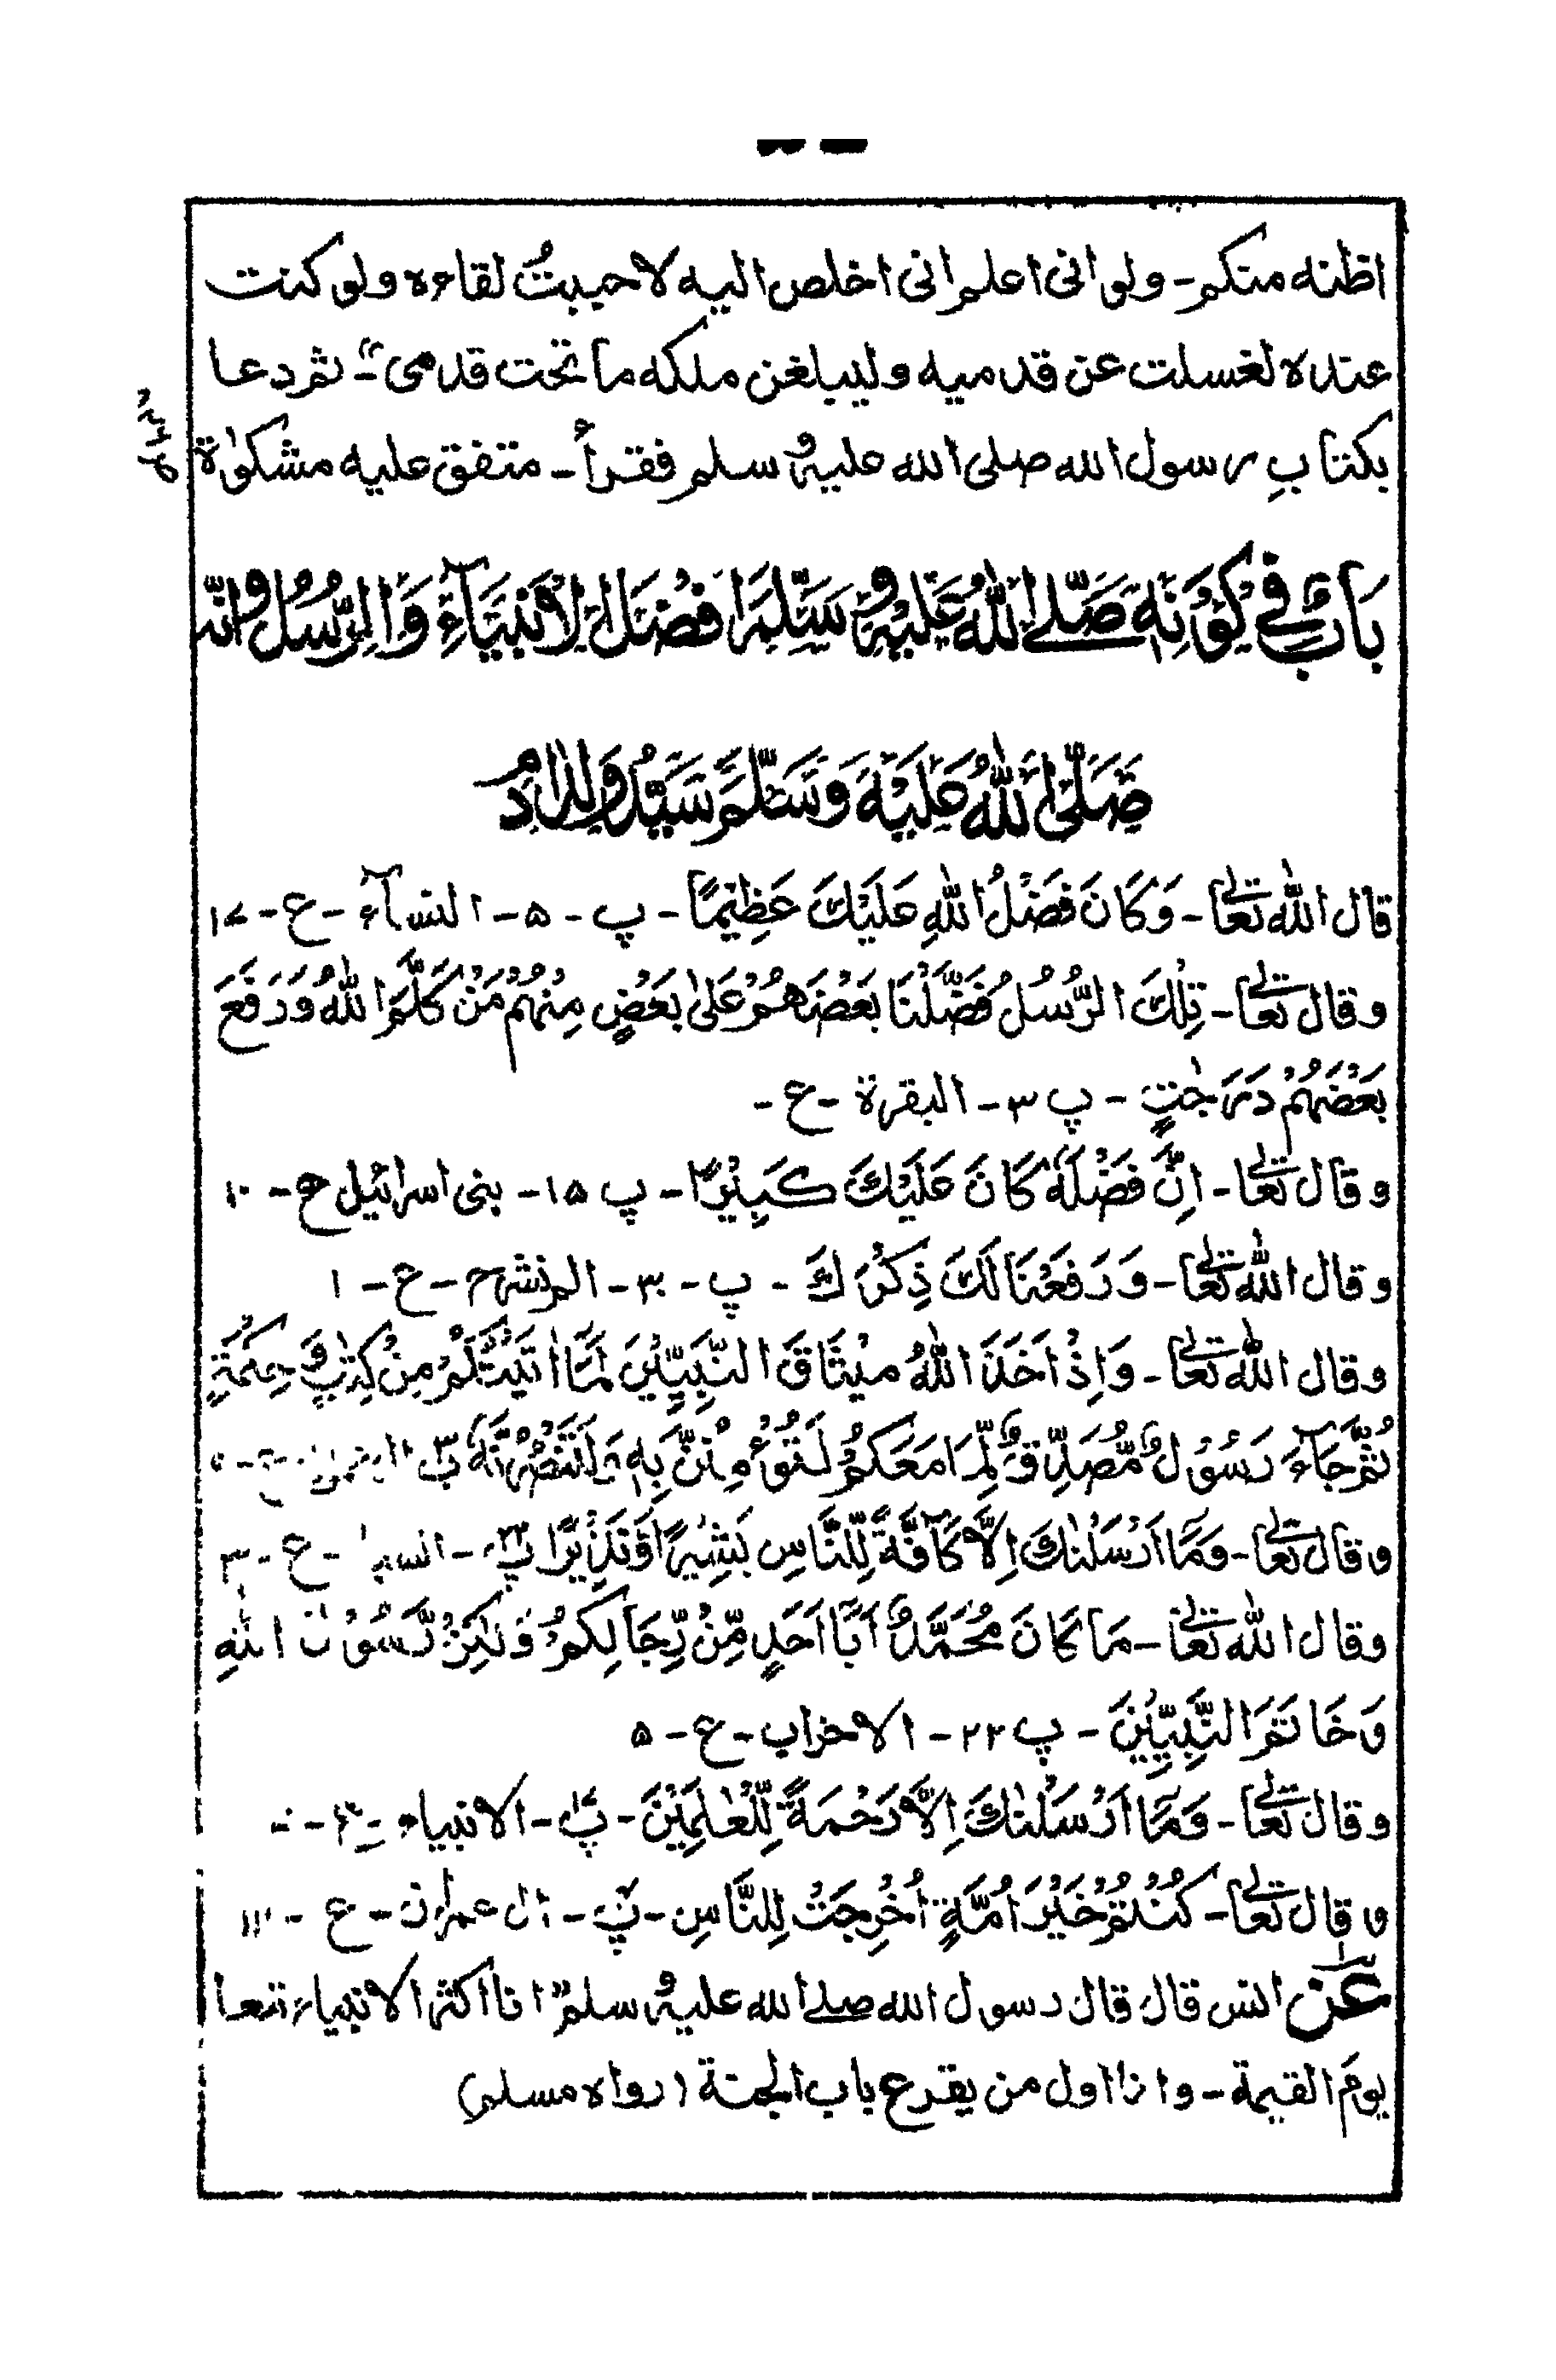 اظنه منكم - ولو انى اعلم انى اخلص اليه لاحببتُ لقاءه ولو كنت
عنده لغسلت عن قدميه وليبلغن ملكه ما تحت قدمىّ - ثم دعا
بكتابِ رسول الله صلى الله عليه وسلم فقرأ - متفق عليه مشكوٰة
بَابٌ فِي كَوْنِهٖ صَلَّى اللهُ عَلَيْهِ وَسَلَّمَ اَفْضَلَ الْاَنْبِيَآءِ وَالرُّسُلِ وَانَّه
صَلَّى اللهُ عَلَيْهِ وَسَلَّمَ سَيِّدُ وُلْدِ اٰدَمَ
قال الله تعالٰى - وَكَانَ فَضْلُ اللهِ عَلَيْكَ عَظِيْمًا - پ - ۵ - النسآء - ع - ۱۷
وقال تعالٰى - تِلْكَ الرُّسُلُ فَضَّلْنَا بَعْضَهُمْ عَلٰى بَعْضٍ مِنْهُمْ مَنْ كَلَّمَ اللهُ وَرَفَعَ
بَعْضَهُمْ دَرَجٰتٍ - پ ۳ - البقرة - ع -
وقال تعالٰى - اِنَّ فَضْلَهٗ كَانَ عَلَيْكَ كَبِيْرًا - پ ۱۵ - بنى اسرائيل ع - ۱۰
وقال الله تعالٰى - وَرَفَعْنَا لَكَ ذِكْرَكَ - پ - ۳۰ - الم نشرح - ع - ۱
وقال الله تعالٰى - وَاِذْ اَخَذَ اللهُ مِيْثَاقَ النَّبِيّٖنَ لَمَا اٰتَيْتُكُمْ مِنْ كِتٰبٍ وَّحِكْمَةٍ
ثُمَّ جَآءَ رَسُوْلٌ مُّصَدِّقٌ لِّمَا مَعَكُمْ لَتُؤْمِنُنَّ بِهٖ وَلَتَنْصُرُنَّهٗ پ ۳
وقال تعالٰى - وَمَا اَرْسَلْنٰكَ اِلَّا كَآفَّةً لِّلنَّاسِ بَشِيْرًا وَّنَذِيْرًا پ ۲۲ - السبا - ع - ۳
وقال الله تعالٰى - مَا كَانَ مُحَمَّدٌ اَبَا اَحَدٍ مِّنْ رِّجَالِكُمْ وَلٰكِنْ رَّسُوْلَ اللهِ
وَخَاتَمَ النَّبِيّٖنَ - پ ۲۲ - الاحزاب - ع - ۵
وقال تعالٰى - وَمَا اَرْسَلْنٰكَ اِلَّا رَحْمَةً لِّلْعٰلَمِيْنَ - پ - الانبياء
وقال تعالٰى - كُنْتُمْ خَيْرَ اُمَّةٍ اُخْرِجَتْ لِلنَّاسِ - پ - اٰل عمران - ع -
عَنْ انس قال قال رسول الله صلى الله عليه وسلم انا اكثر الانبياء تبعا
يومَ القيمة - وانا اول من يقرع باب الجنة (رواه مسلم)